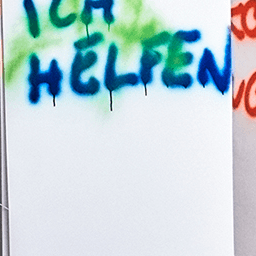 ICH
HELFEN